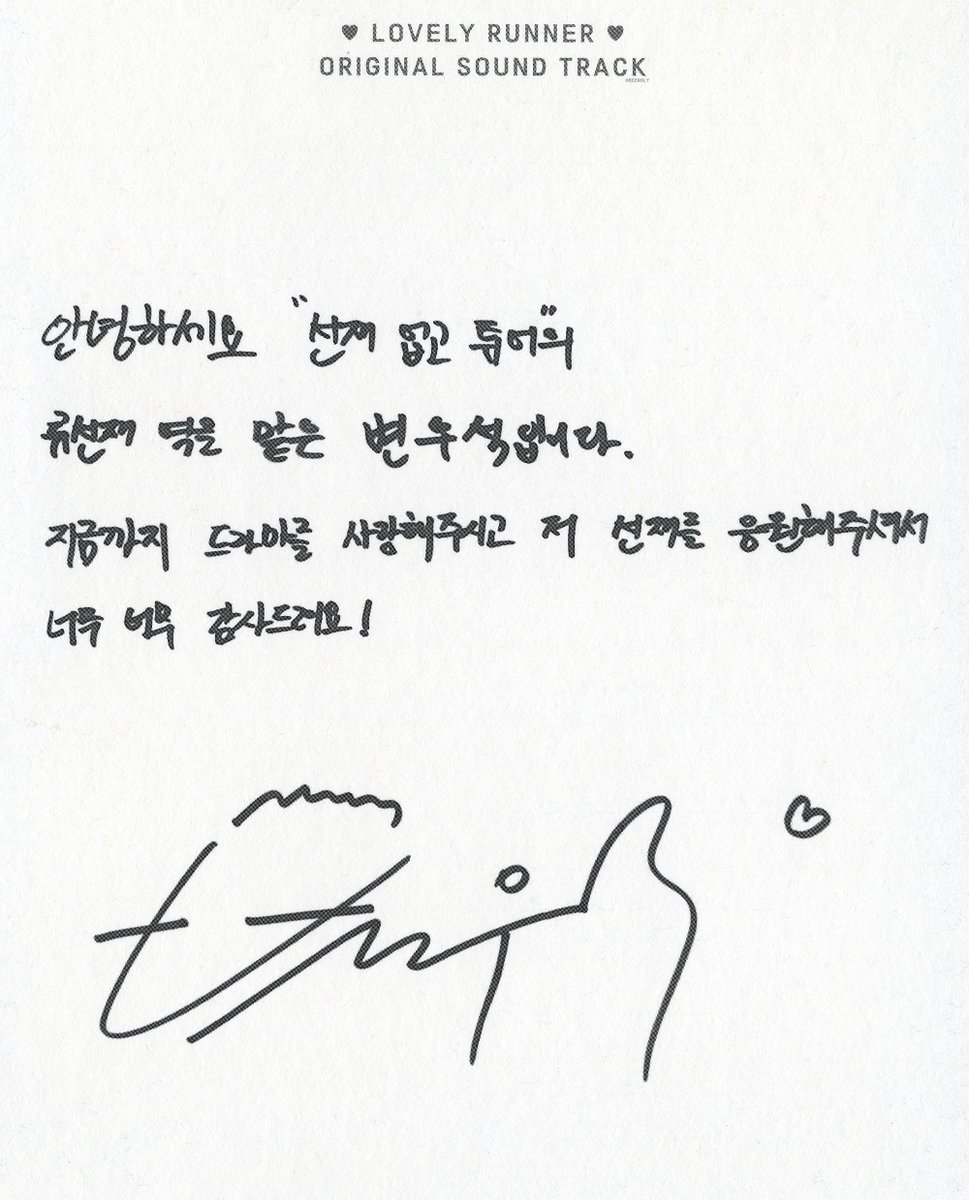 ♥ LOVELY RUNNER ♥
ORIGINAL SOUND TRACK
안녕하세요 "선재 업고 튀어"의
류선재 역을 맡은 변우석입니다.
지금까지 드라마를 사랑해주시고 저 선재를 응원해주셔서
너무 너무 감사드려요!